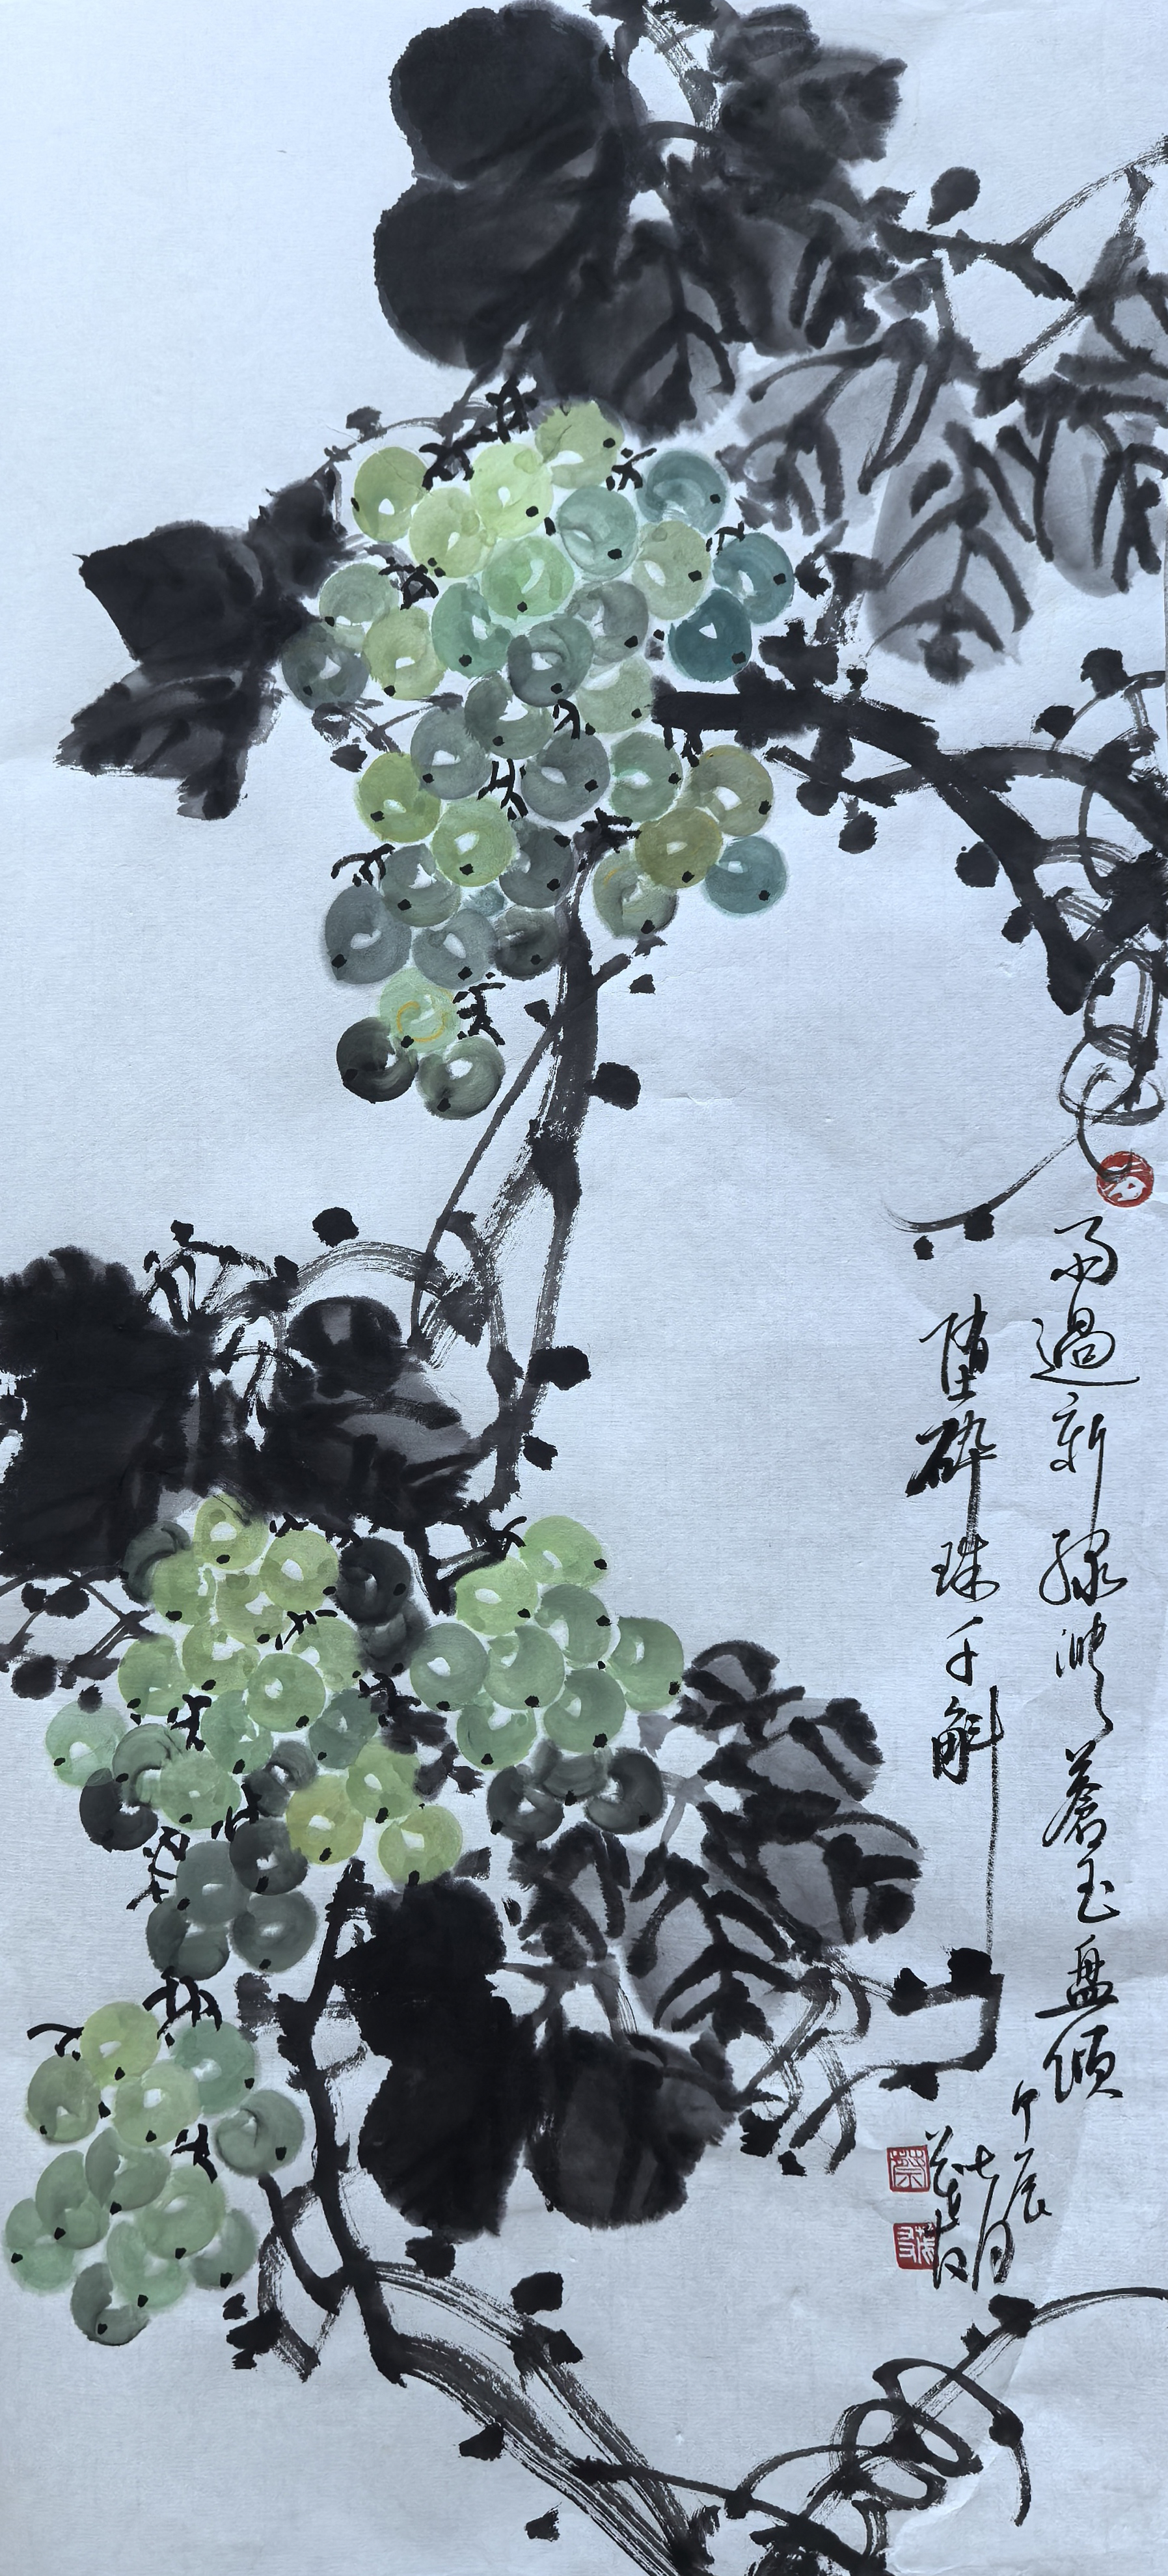 雨過新綠洗蒼玉盤傾
墮碎珠千斛
甲辰
七月